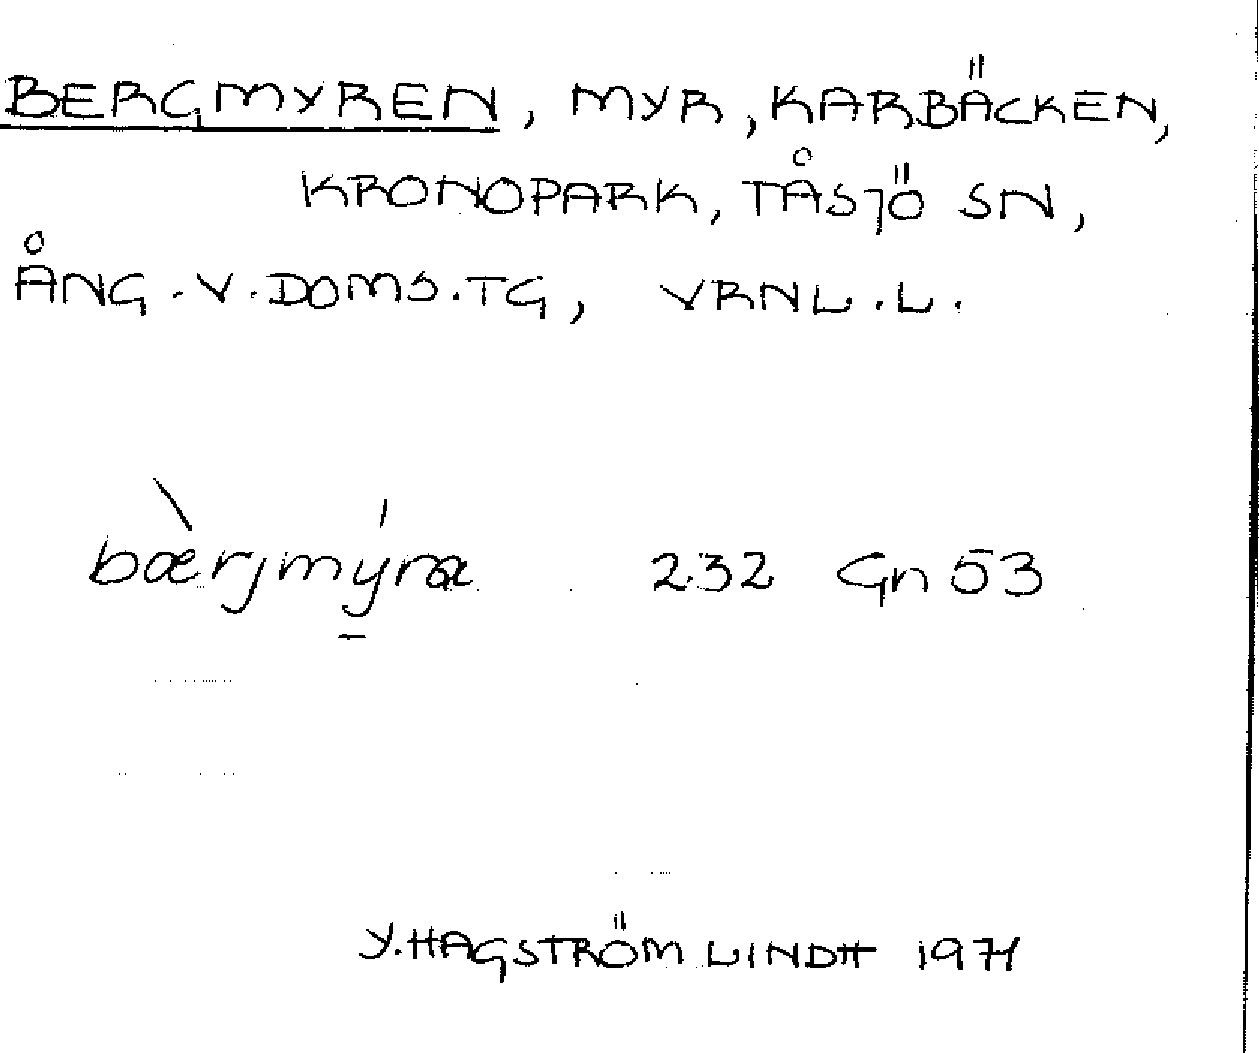 BERGMYREN, MYR, KARBÄCKEN,
KRONOPARK, TÅSJÖ SN,
ÅNG.V.DOMS.TG, VRNL.L.
bæ̀rjmý̱ra 232 Gn 53
Y.HAGSTRÖM LINDH 1971